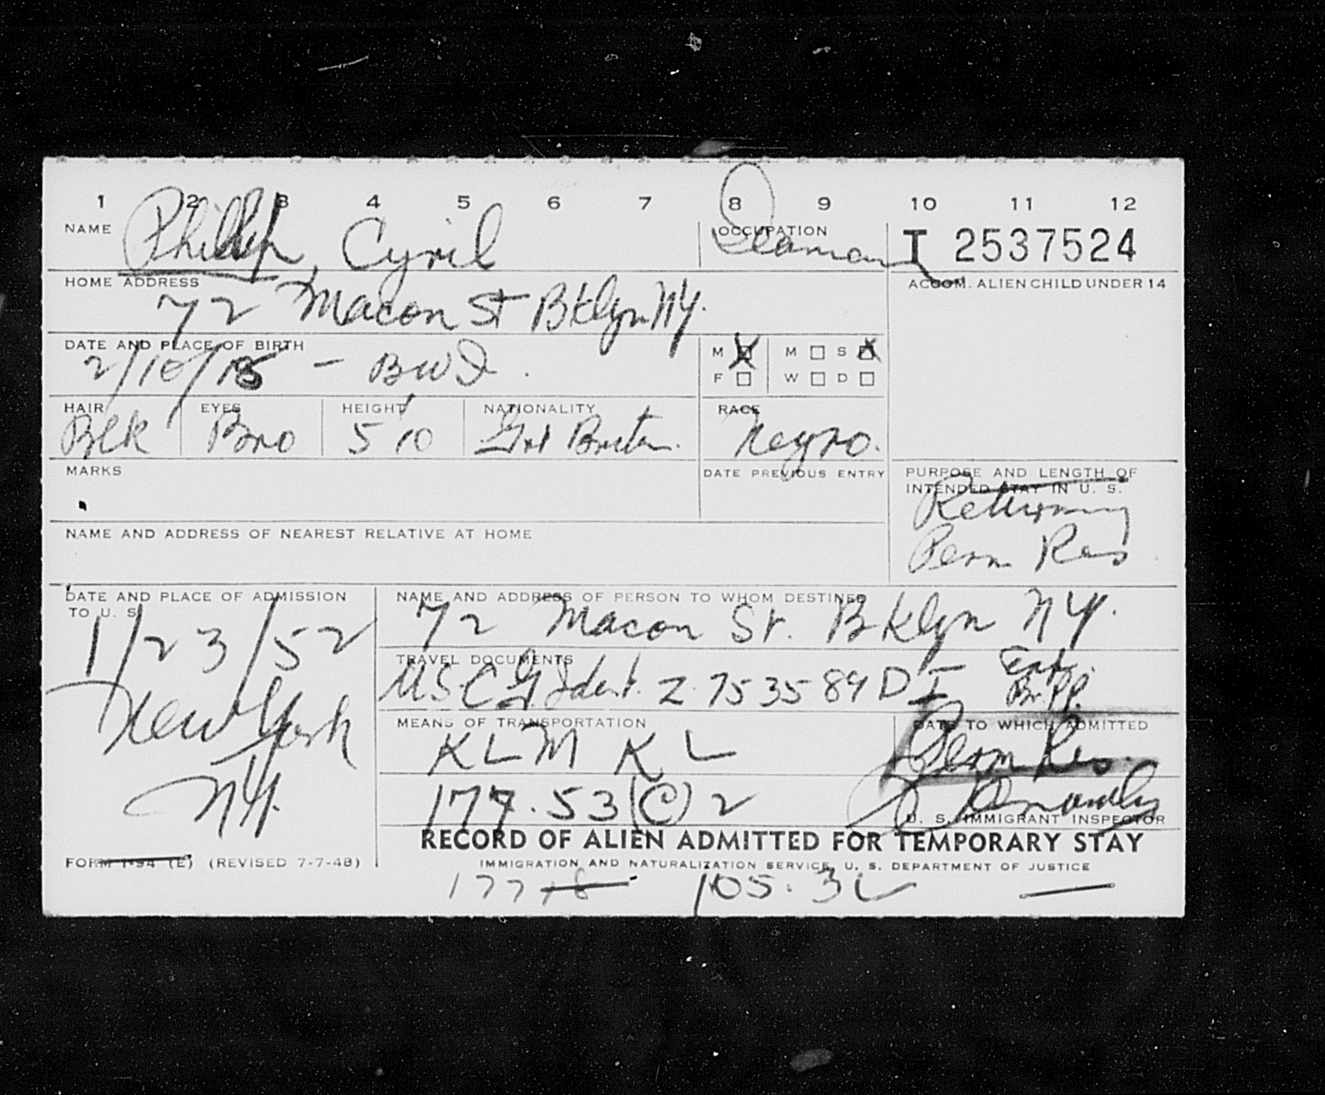 1 2 3 4 5 6 7 8 9 10 11 12
NAME Phillip, Cyril
OCCUPATION Seaman
T 2537524
HOME ADDRESS
72 Macon St Bklyn NY.
ACCOM. ALIEN CHILD UNDER 14
DATE AND PLACE OF BIRTH
2/10/18 - BWI.
M X M S X
F W D
HAIR Blk EYES Bro HEIGHT 5 10 NATIONALITY Grt Britn. RACE Negro.
MARKS
DATE PREVIOUS ENTRY
PURPOSE AND LENGTH OF
INTENDED STAY IN U. S.
Returning
Perm Res
NAME AND ADDRESS OF NEAREST RELATIVE AT HOME
DATE AND PLACE OF ADMISSION
TO U. S.
1/23/52
New York
NY.
NAME AND ADDRESS OF PERSON TO WHOM DESTINED
72 Macon St. Bklyn NY.
TRAVEL DOCUMENTS
USCG Ident. Z 753589 D I
Br. PP.
MEANS OF TRANSPORTATION
KLM KL
DATE TO WHICH ADMITTED
Perm Res.
177.53(C)2
U. S. IMMIGRANT INSPECTOR
RECORD OF ALIEN ADMITTED FOR TEMPORARY STAY
FORM I-94 (E) (REVISED 7-7-48)
IMMIGRATION AND NATURALIZATION SERVICE, U. S. DEPARTMENT OF JUSTICE
105.32